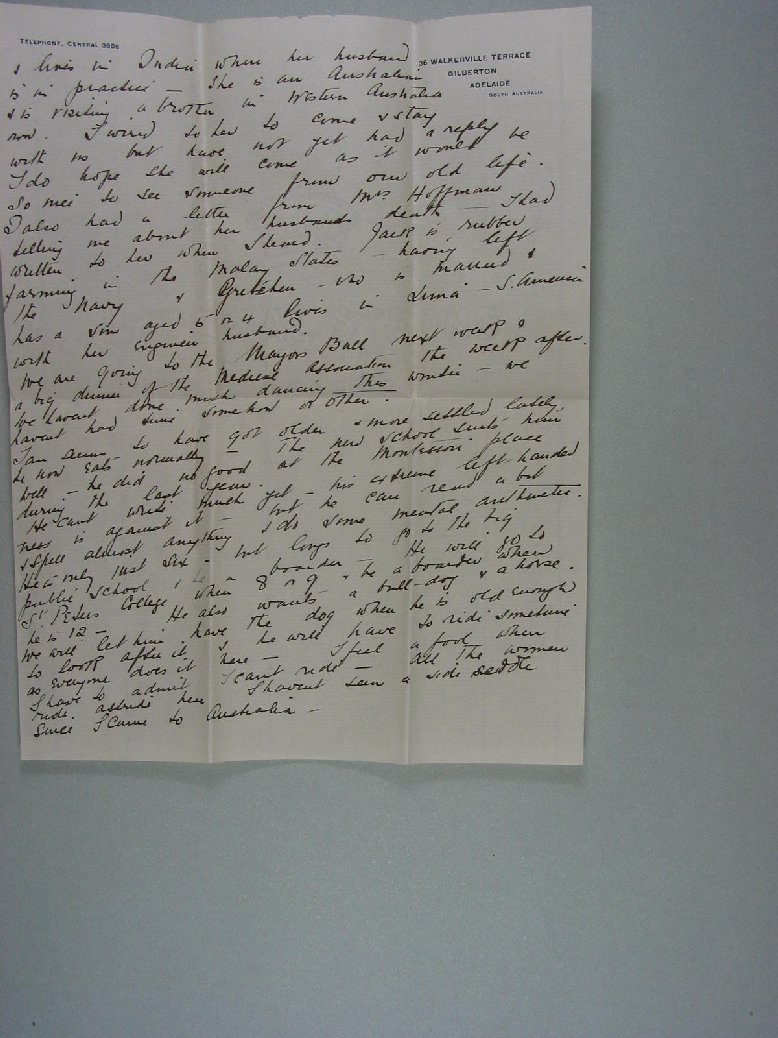 TELEPHONE, CENTRAL 3886
36 WALKERVILLE TERRACE
GILBERTON
ADELAIDE
SOUTH AUSTRALIA
& lives in India where her husband
is in practice – She is an Australian
& is visiting a brother in Western Australia
now. I wired to her to come & stay
with us but have not yet had a reply
I do hope she will come as it would be
so nice to see someone from our old life.
I also had a letter from Mrs Hoffman
telling me about her husbands death – I had
written to her when I heard. Jack is rubber
farming in the Malay States – having left
the Navy & Gretchen – who is married &
has a son aged 5 or 4 lives in Lima – S. America
with her engineer husband.
We are going to the Mayors Ball next week &
a big dinner of the Medical Association the week after.
We havent done much dancing this winter – we
havent had time somehow or other.
Ian seems to have got older & more settled lately,
he now eats normally – The new school suits him
well – he did no good at the Montessori place
during the last year.
He cant write much yet – his extreme left-handed
ness is against it – but he can read a bit
& spell almost anything & do some mental arithmetic.
He is only just six – but longs to go to the big
public school & be a boarder – He will go to
St Peters College when 8 or 9 & be a boarder when
he is 12 – He also wants a bull-dog & a horse.
We will let him have the dog when he is old enough
to look after it & he will have to ride sometime
as everyone does it here – I feel a fool when
I have to admit I cant ride – All the women
ride astride here I havent seen a side saddle
since I came to Australia –